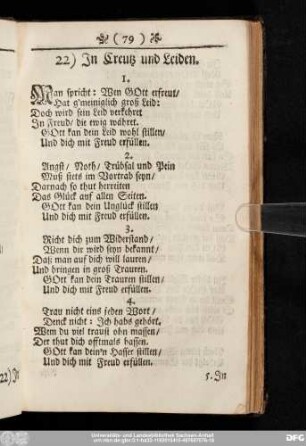 ( 79 )
22) In Creutz und Leiden.
1.
Man spricht: Wen GOtt erfreut/
Hat g'meiniglich groß Leid:
Doch wird sein Leid verkehret
In Freud/ die ewig währet.
GOtt kan dein Leid wohl stillen/
Und dich mit Freud erfüllen.
2.
Angst/ Noth/ Trübsal und Pein
Muß stets im Vortrab seyn/
Darnach so thut berreiten
Das Glück auf allen Seiten.
GOtt kan dein Unglück stillen
Und dich mit Freud erfüllen.
3.
Richt dich zum Widerstand/
Wenn dir wird seyn bekannt/
Daß man auf dich will lauren/
Und bringen in groß Trauren.
GOtt kan dein Trauren stillen/
Und dich mit Freud erfüllen.
4.
Trau nicht eins jeden Wort/
Denck nicht: Ich habs gehört.
Wem du viel traust ohn massen/
Der thut dich offtmals hassen.
GOtt kan dein'n Hasser stillen/
Und dich mit Freud erfüllen.
5. In
22) In
Universitäts- und Landesbibliothek Sachsen-Anhalt